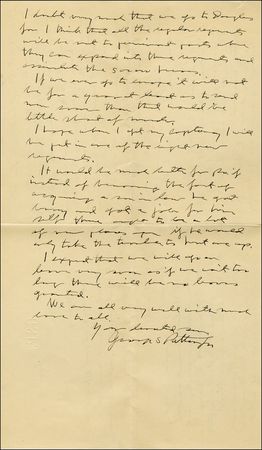 I doubt very much that we go to Douglas
for I think that all the regular regiments
will be sent to permanent posts where
they can expand into three regiments and
assimilate the some
If we ever go to europe it will not
be for a year at least as to send
us sooner than that would be
little short of murder.
I hope when I get my captaincy I will
be put in one of the eight new
regiments.
It would be much better for
instead of the fact of
acquiring a son in law he got
busy and got a job for him
self. There ought to be a lot
of nice places if he would
only take the trouble to hunt one up.
I expect that we will go on
leave very soon as if we wait too
long there will be no leaves
granted.
We are all very well with much
love to all.
Your devoted son
George S Patton Jr